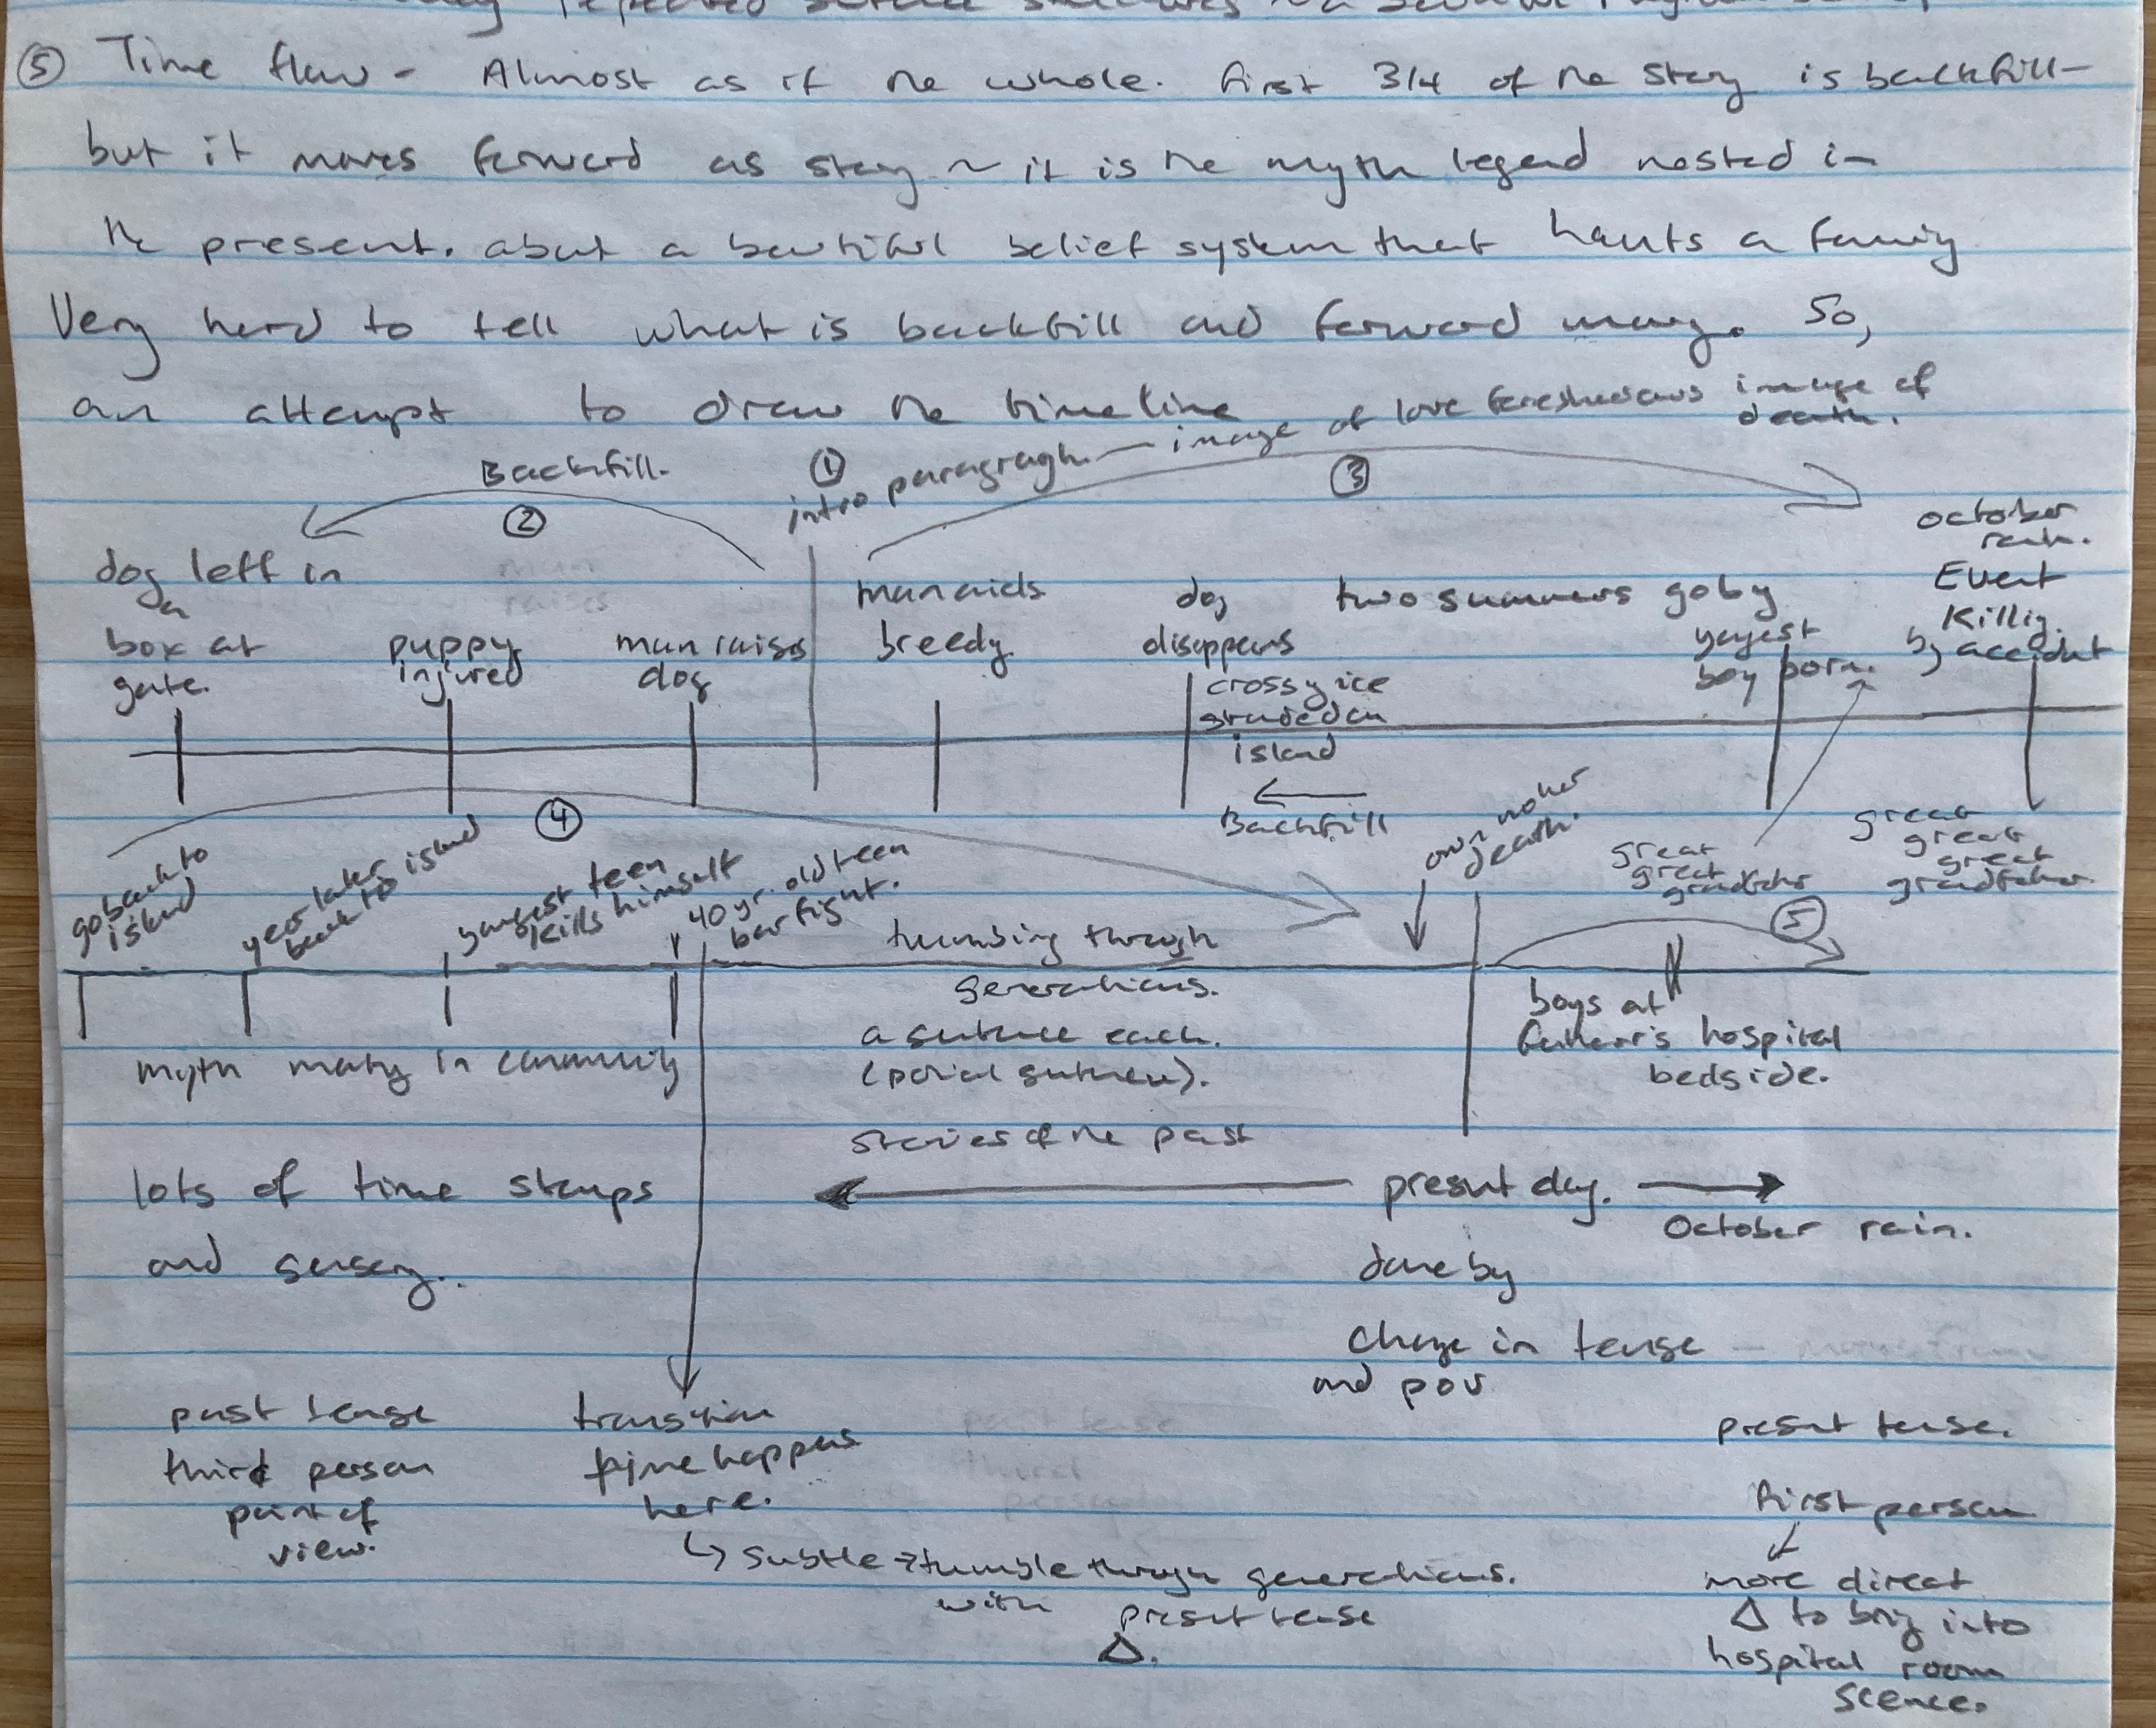 repeated sentence structures
⑤ Time flow - Almost as if the whole. first 3/4 of the story is backfill -
but it moves forward as story ~ it is the myth legend nested in
the present. about a beutiful belief system that haunts a family
Very hard to tell what is backfill and forward moving. So,
an attempt to draw the timeline
image of love foreshadows image of
death.
① intro paragraph —
Backfill.
②
③
dog left in
a
box at
gate.
puppy
injured
man raises
dog
man aids
breedy
dog
disappears
crossing ice
grounded on
island
← Backfill
two summers go by
yongest
boy born.
october
rain.
Event
Killing
by accident
④
go back to
island
year later
back to island
yongest teen
kills himself
40 yr. old teen
bar fight.
own mother
death.
great
great
grandfather
great
great
great
grandfather
tumbling through
generations.
a sentence each.
(partial sentence).
⑤
boys at
father's hospital
bedside.
myth making in community
stories of the past
lots of time stamps
and sensory..
← present day. →
October rain.
done by
change in tense
and pov
past tense
third person
point of
view.
transition
time happens
here.
↳ subtle → tumble through generations.
with present tense
Δ.
present tense.
first person
↙
more direct
Δ to bring into
hospital room
scence.